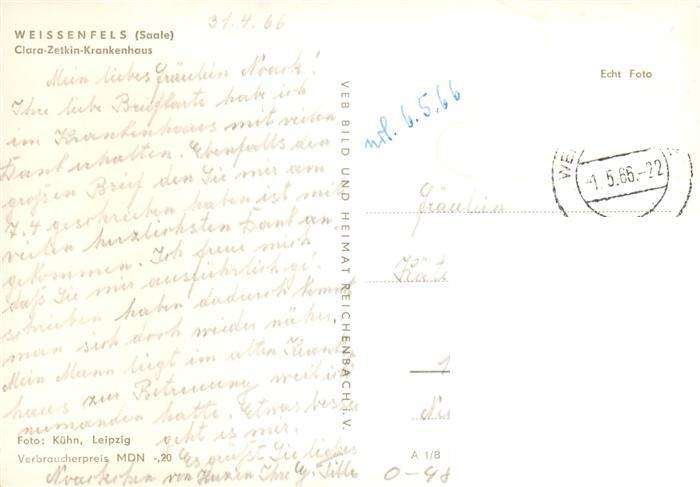 31.4.66
WEISSENFELS (Saale)
Clara-Zetkin-Krankenhaus
Mein liebes Fräulein Noack!
Ihre liebe Briefkarte habe ich
im Krankenhaus mit vielen
Dank erhalten. Ebenfalls den
großen Brief den Sie mir am
7.4 geschrieben haben ist mit
vielen herzlichsten Dank an-
gekommen. Ich freue mich
daß Sie mir ausführlich ge-
schrieben haben dadurch kommt
man sich doch wieder näher.
Mein Mann liegt im alten Kranken
haus zur Betreuung weil ich
niemanden hatte. Etwas besser
geht es mir.
Es grüßt Sie liebes
von Herzen Ihre
Foto: Kühn, Leipzig
Verbraucherpreis MDN -,20
VEB BILD UND HEIMAT REICHENBACH i. V.
Echt Foto
6.5.66
WE
-1.5.66.-22
Fräulein
A 1/B
0-48